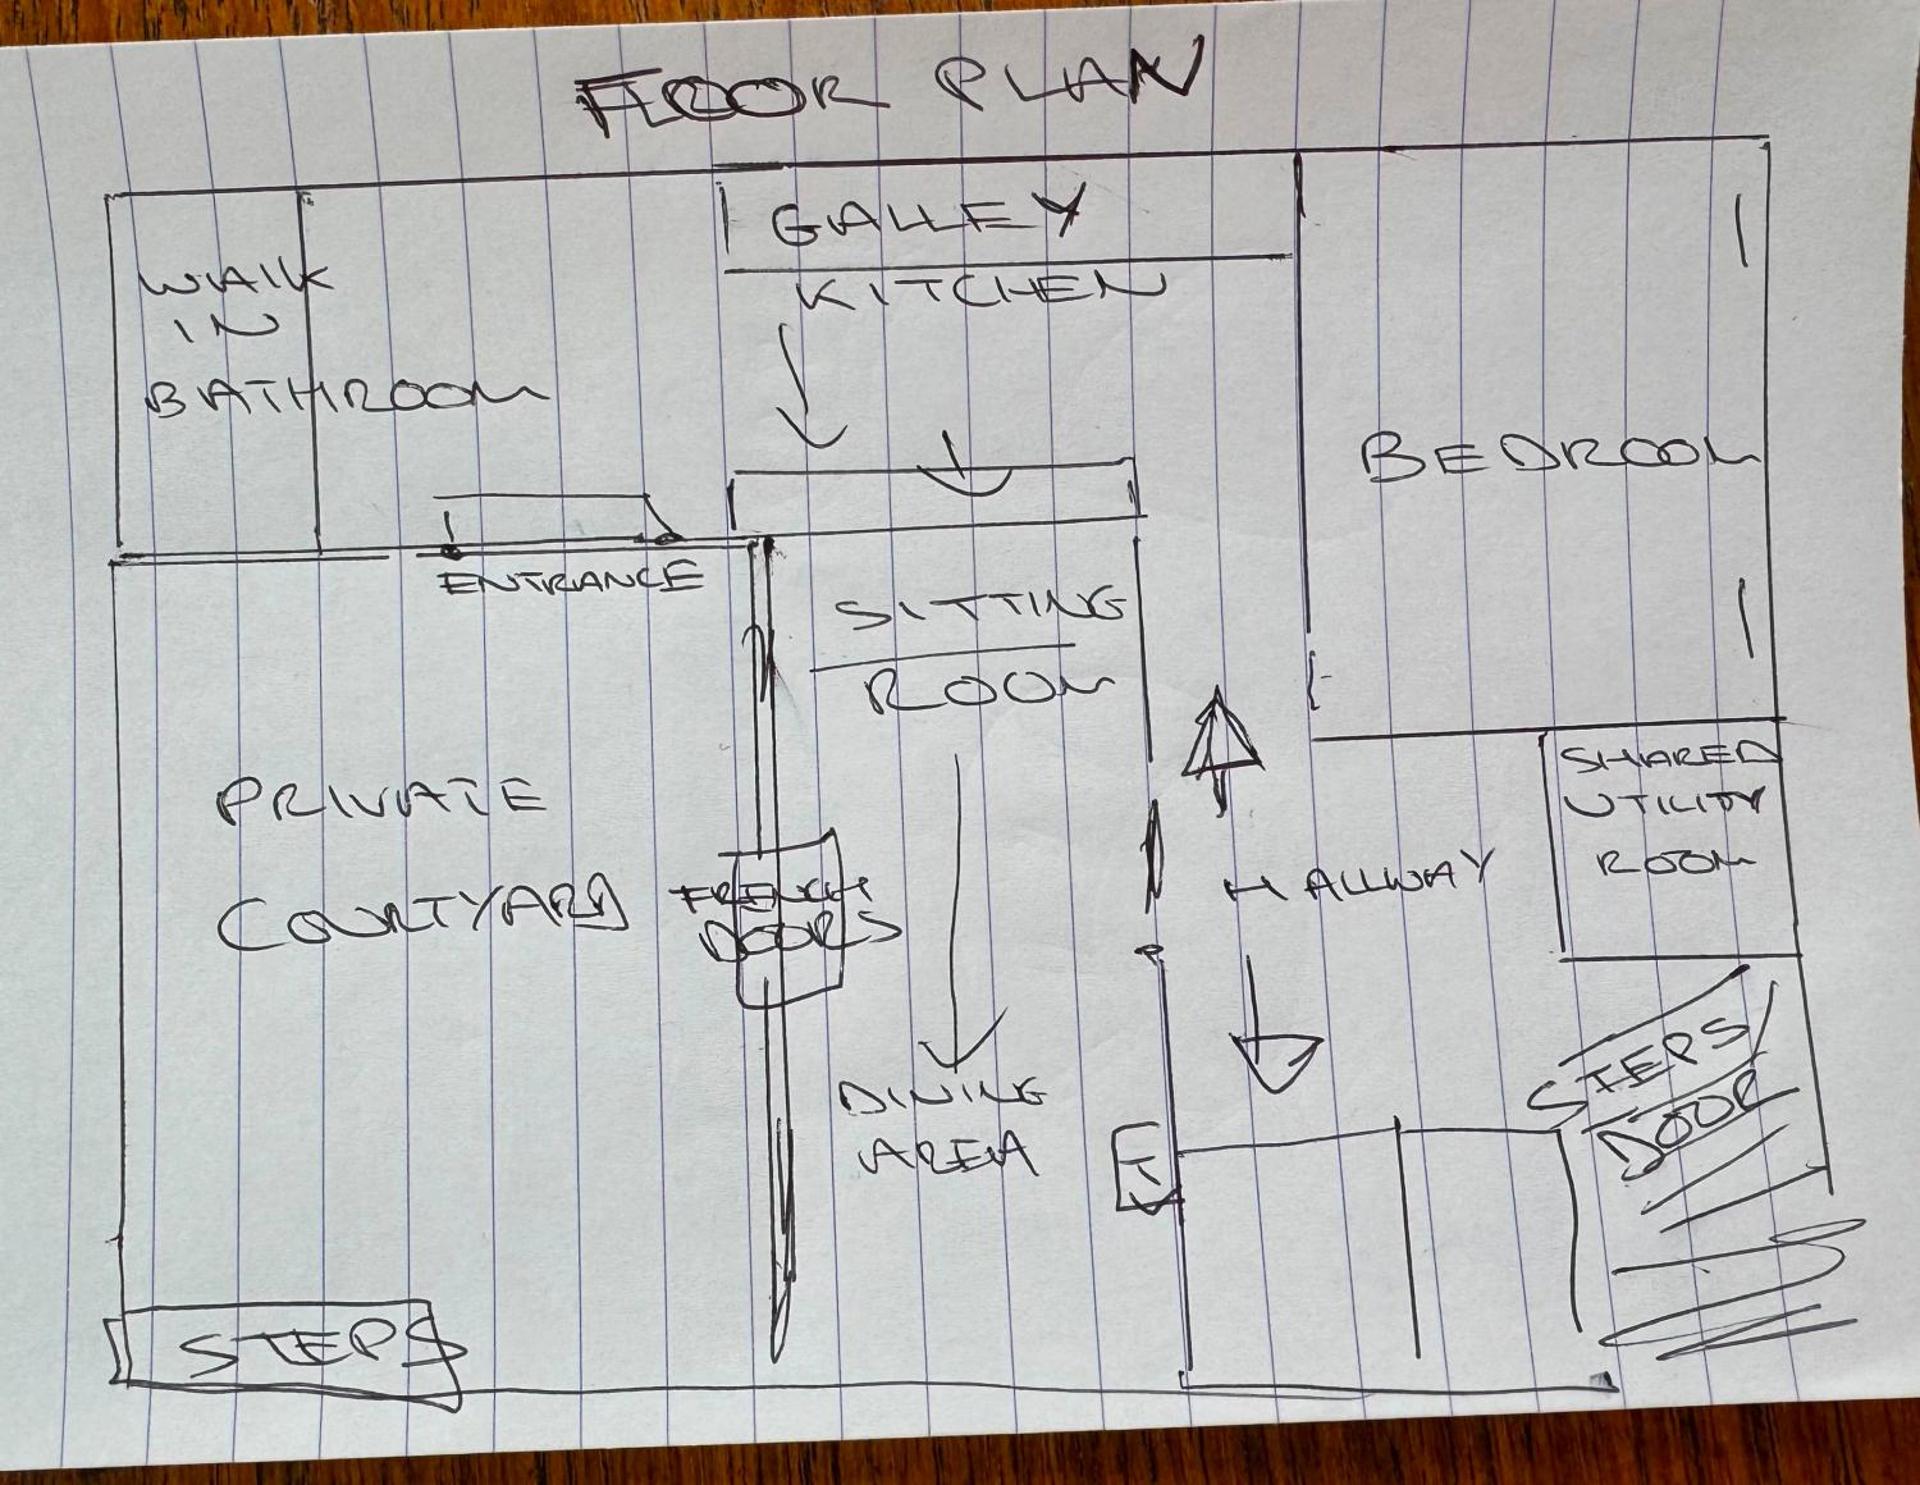 FLOOR PLAN
GALLEY
KITCHEN
WALK
IN
BATHROOM
BEDROOM
ENTRANCE
SITTING
ROOM
SHARED
UTILITY
ROOM
PRIVATE
COURTYARD
FRENCH
DOORS
HALLWAY
DINING
AREA
STEPS/
DOOR
STEPS